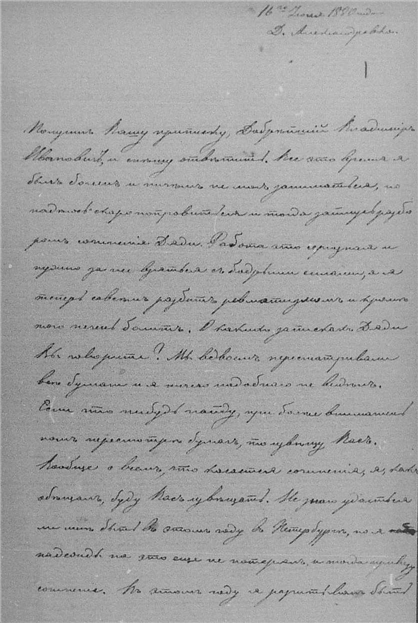 16го Іюля 1890 года
Д. Александровка.
Получилъ Вашу приписку, Добрѣйшій Владиміръ
Ивановичъ, и спѣшу отвѣтить. Все это время я
былъ боленъ и ничѣмъ не могъ заниматься, но
надѣюсь скоро поправиться и тогда займусь разбо
ромъ сочиненія Дяди. Работа это серіозная и
нужно за нее взяться съ бодрыми силами, а я
теперь совсѣмъ разбитъ ревматизмомъ и кромѣ
того печень болитъ. О какихъ запискахъ Дяди
Вы говорите? Мы вдвоемъ пересматривали
всѣ бумаги и я ничего подобнаго не видѣлъ.
Если что нибудь найду, при болѣе вниматель
номъ пересмотрѣ бумагъ, то извѣщу Васъ.
Вообще о всемъ, что касается сочиненія, я, какъ
обѣщалъ, буду Васъ извѣщать. Не знаю удастся
ли мнѣ быть въ этомъ году въ Петербургѣ, но я
надежды на это еще не потерялъ, и тогда привезу
сочиненіе. Въ этомъ году я быть